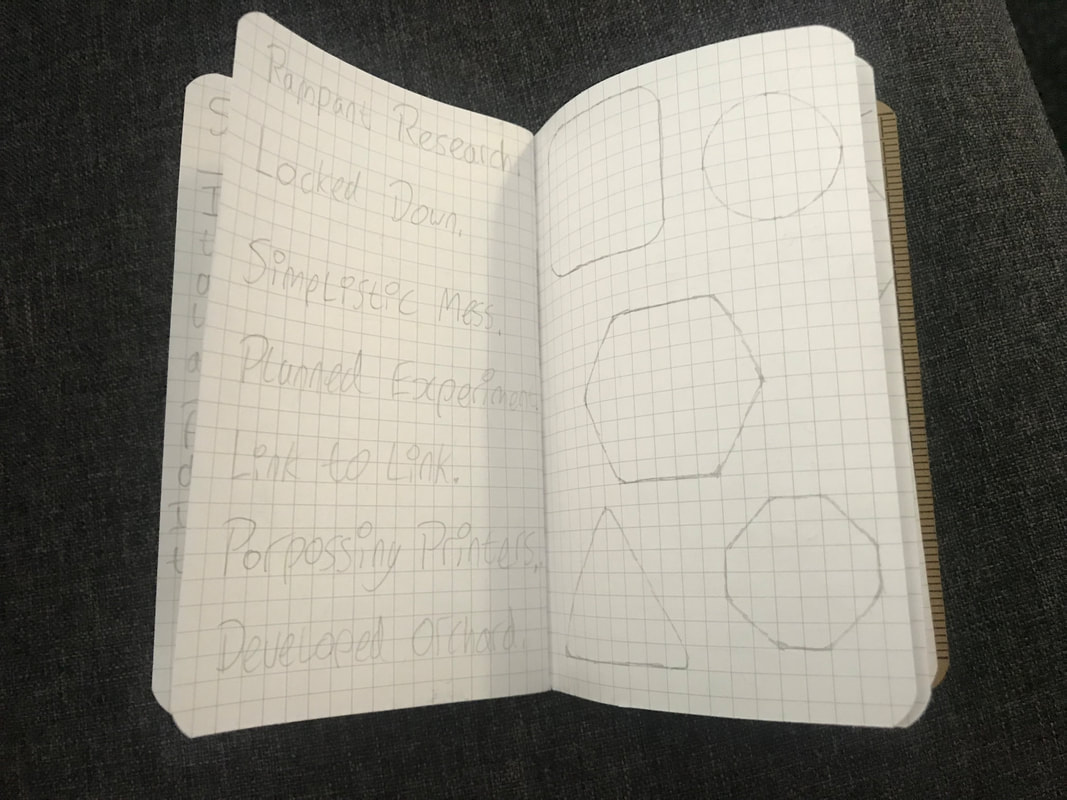 Rampant Research.
Locked Down.
Simplistic Mess.
Planned Experiment
Link to Link.
Porpossing Printers.
Developed Orchard.